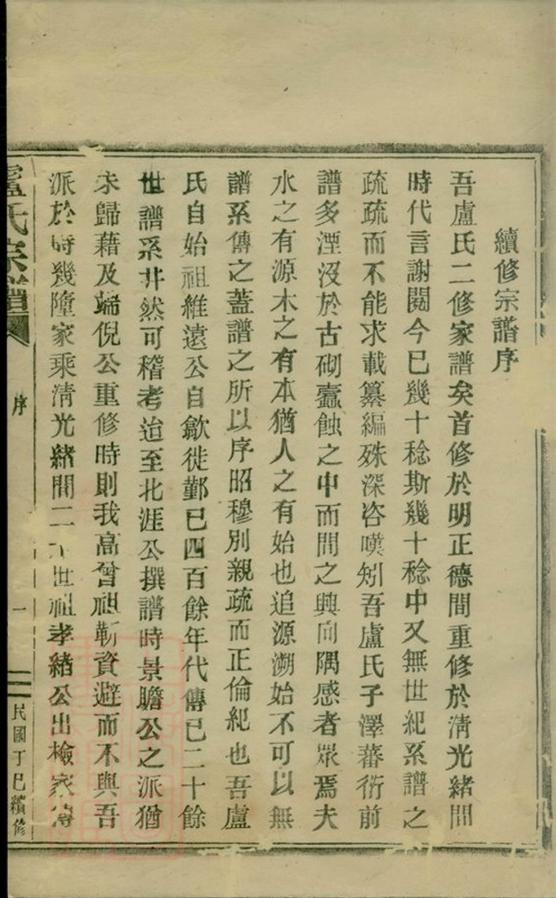 續修宗譜序
吾盧氏二修家譜矣首修於明正德間重修於清光緒間
時代言謝閱今已幾十稔斯幾十稔中又無世紀系譜之
疏疏而不能求載纂編殊深咨嘆矧吾盧氏子澤蕃衍前
譜多湮沒於古砌蠹蝕之中而間之興向隅感者眾焉夫
水之有源木之有本猶人之有始也追源溯始不可以無
譜系傳之蓋譜之所以序昭穆別親疏而正倫紀也吾盧
氏自始祖維遠公自歙徙鄞已四百餘年代傳已二十餘
世譜系井然可稽考迨至北涯公撰譜時景瞻公之派猶
未歸藉及端倪公重修時則我高曾祖靳資避而不與吾
派於時幾墮家乘清光緒間二世祖孝緒公出檢家傳
盧氏宗譜
序
一
民國丁巳續修